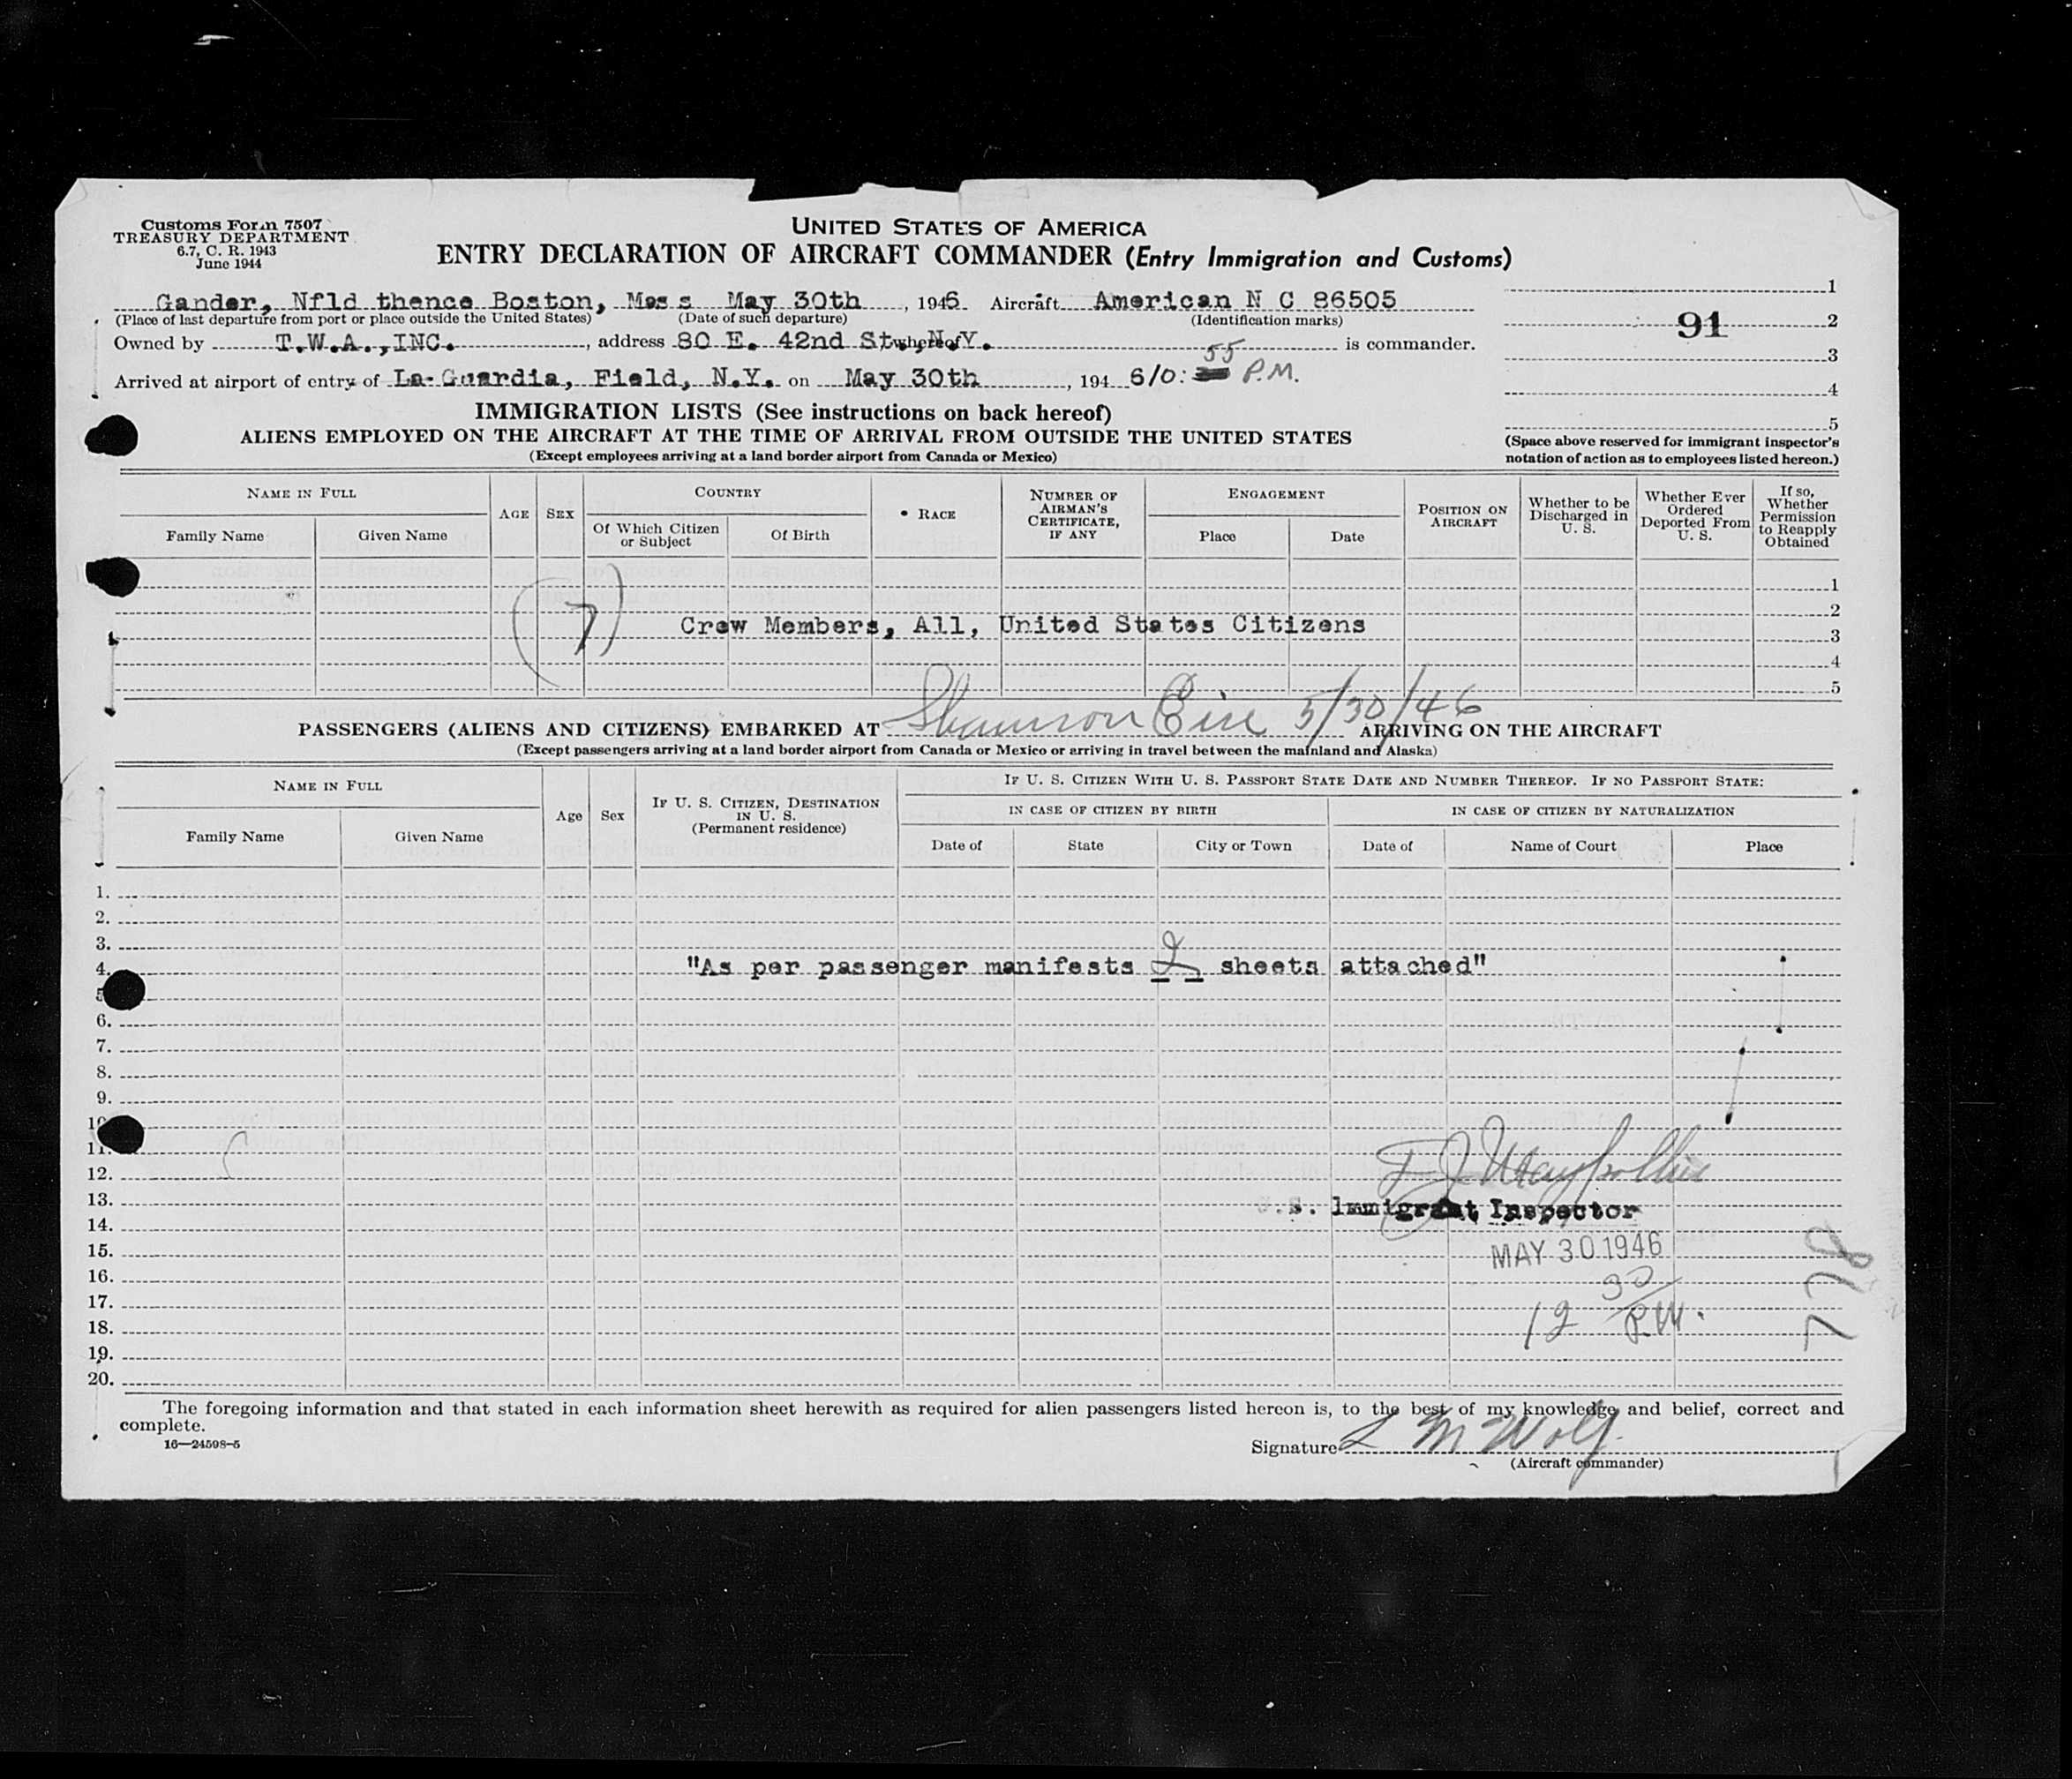 Customs Form 7507
TREASURY DEPARTMENT
6.7, C. R. 1943
June 1944
UNITED STATES OF AMERICA
ENTRY DECLARATION OF AIRCRAFT COMMANDER (Entry Immigration and Customs)
Gander, Nfld thence Boston, Mass May 30th, 1946 Aircraft American N C 86505
(Place of last departure from port or place outside the United States) (Date of such departure) (Identification marks)
Owned by T.W.A.,INC., address 80 E. 42nd St., N.Y. whereof is commander.
Arrived at airport of entry of La-Guardia, Field, N.Y. on May 30th, 1946 10:55 P.M.
1
91 2
3
4
5
(Space above reserved for immigrant inspector's
notation of action as to employees listed hereon.)
IMMIGRATION LISTS (See instructions on back hereof)
ALIENS EMPLOYED ON THE AIRCRAFT AT THE TIME OF ARRIVAL FROM OUTSIDE THE UNITED STATES
(Except employees arriving at a land border airport from Canada or Mexico)
NAME IN FULL
Family Name
Given Name
AGE
SEX
COUNTRY
Of Which Citizen
or Subject
Of Birth
• RACE
NUMBER OF
AIRMAN'S
CERTIFICATE,
IF ANY
ENGAGEMENT
Place
Date
POSITION ON
AIRCRAFT
Whether to be
Discharged in
U. S.
Whether Ever
Ordered
Deported From
U. S.
If so,
Whether
Permission
to Reapply
Obtained
1
2
(7) Crew Members, All, United States Citizens
3
4
5
PASSENGERS (ALIENS AND CITIZENS) EMBARKED AT Shannon Eire 5/30/46 ARRIVING ON THE AIRCRAFT
(Except passengers arriving at a land border airport from Canada or Mexico or arriving in travel between the mainland and Alaska)
NAME IN FULL
Family Name
Given Name
Age
Sex
IF U. S. CITIZEN, DESTINATION
IN U. S.
(Permanent residence)
IF U. S. CITIZEN WITH U. S. PASSPORT STATE DATE AND NUMBER THEREOF. IF NO PASSPORT STATE:
IN CASE OF CITIZEN BY BIRTH
IN CASE OF CITIZEN BY NATURALIZATION
Date of
State
City or Town
Date of
Name of Court
Place
1.
2.
3.
4. "As per passenger manifests 2 sheets attached"
5
6.
7.
8.
9.
10
11.
12.
13. U.S. Immigrant Inspector
14.
15. MAY 30 1946
16.
17. 12 30/P.M.
18.
778
19.
20.
The foregoing information and that stated in each information sheet herewith as required for alien passengers listed hereon is, to the best of my knowledge and belief, correct and
complete.
16—24598-5
Signature L M Wolf
(Aircraft commander)